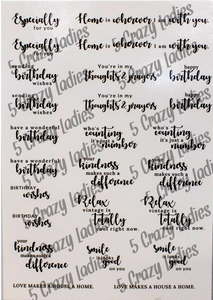 Especially for you
Home is wherever I am with you.
Especially for you
Home is wherever I am with you.
sending birthday wishes
You're in my Thoughts & prayers
happy birthday
sending birthday wishes
You're in my Thoughts & prayers
happy birthday
have a wonderful birthday
who's counting number
your kindness makes such a difference
have a wonderful birthday
who's counting number
BIRTHDAY wishes
kindness makes such a difference
Relax vintage is totally cool right now.
BIRTHDAY wishes
Relax vintage is totally cool right now.
your kindness makes such a difference
smile it looks good on you
smile it looks good on you
LOVE MAKES A HOUSE A HOME.
LOVE MAKES A HOUSE A HOME.
5 Crazy Ladies
5 Crazy Ladies
5 Crazy Ladies